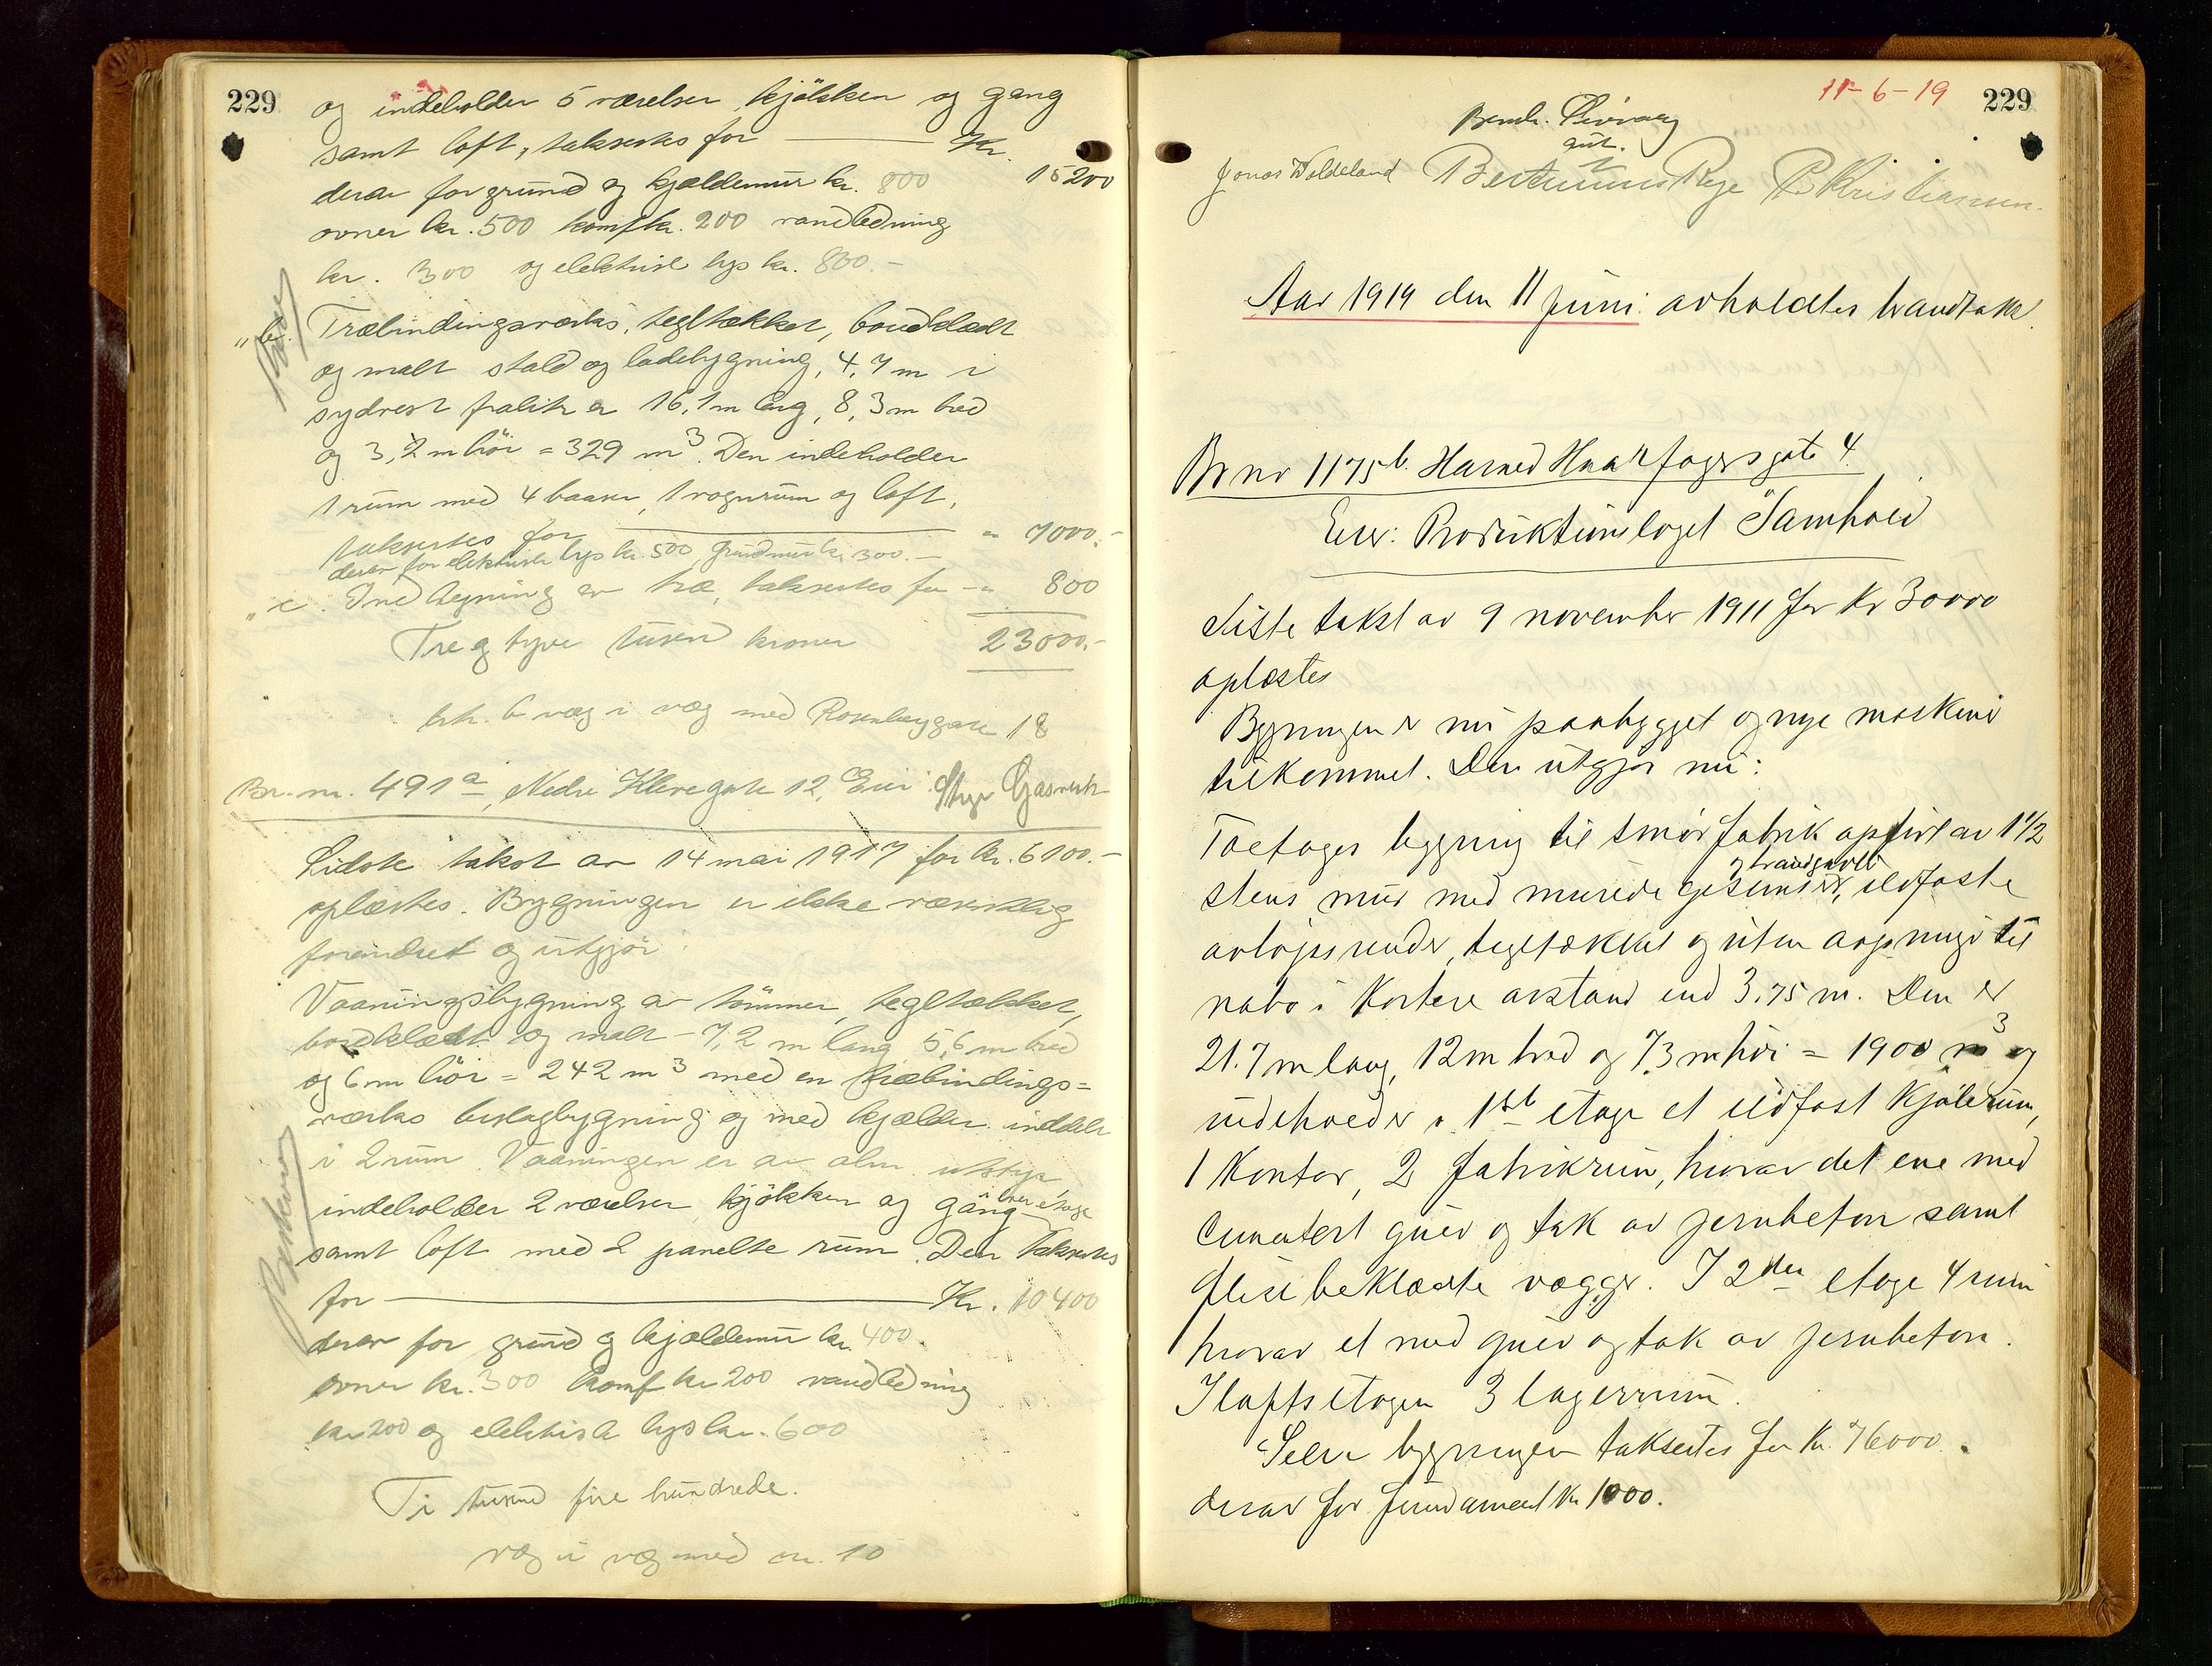 229
og indeholder 5 værelser kjökken og gang
samt loft, taksertes for — Kr. 15200
derav for grund og kjældermur kr. 800
ovner kr. 500 komf kr. 200 vandledning
kr. 300 og elektrisk lys kr. 800.-
"b. Træbindingsverks, tegltækket, bordklædt
og malt stald og ladebygning, 4,7 m i
sydvest for litr a 16,1 m lang, 8,3 m bred
og 3,2 m höi = 329 m³. Den indeholder
1 rum med 4 baaser, 1 vognrum og loft,
taksertes for — " 7000.-
derav for elektrisk lys kr. 500, grundmur kr 300.-
"c. Indhegning av træ, taksertes for -" 800
Tre og tyve tusen kroner 23000.-
litr. b væg i væg med Rosenberggaten 18
Br. nr. 491a, Nedre Klevegate 12, Eier: Stvgr Gasverk
Sidste takst av 14 mai 1917 for kr. 6100.-
oplæstes. Bygningen er ikke væsentlig
forandret og utgjör:
Vaaningsbygning av tömmer, tegltækket,
bordklædt og malt - 7,2 m lang, 5,6 m bred
og 6 m höi = 242 m³ med en træbindings=
verks bislagbygning og med kjælder inddelt
i 2 rum. Vaaningen er av alm. utstyr
indeholder 2 værelser kjökken og gang hver etage
samt loft med 2 panelte rum. Den taksertes
for — Kr. 10400
derav for grund og kjældermur kr. 400.
ovner kr. 300 komf kr 200 vandledning
kr 200 og elektrisk lys kr. 600
Ti tusend fire hundrede.
væg i væg med nr. 10
11-6-19 229
Jonas Waldeland
Rege P Kristiansen.
Aar 1919 den 11 juni avholdtes brandtakst.
Br nr 1175b. Harald Haarfagersgate 4.
Eier: Produktionslaget Samhold
Siste takst av 9 november 1911 for Kr 30000
oplæstes
Bygningen er nu paabygget og nye maskiner
tilkommet. Den utgjør nu:
Toetages bygning til smørfabrik opført av 1 1/2
stens mur med murede gesimser, og brandgavl ildfaste
avløpsrender, tegltækket og uten aapninger til
nabo i kortere avstand end 3.75 m. Den er
21.7 m lang, 12 m bred og 7,3 m høi = 1900 m³ og
indeholder i 1ste etage et ildfast kjølerum,
1 kontor, 2 fabrikrum, hvorav det ene med
cementert gulv og tak av jernbeton samt
flisebeklædte vægger. I 2den etage 4 rum
hvorav et med gulv og tak av jernbeton.
I loftsetagen 3 lagerrum.
Selve bygningen taksertes for Kr. 76000.
derav for fundament Kr 1000.